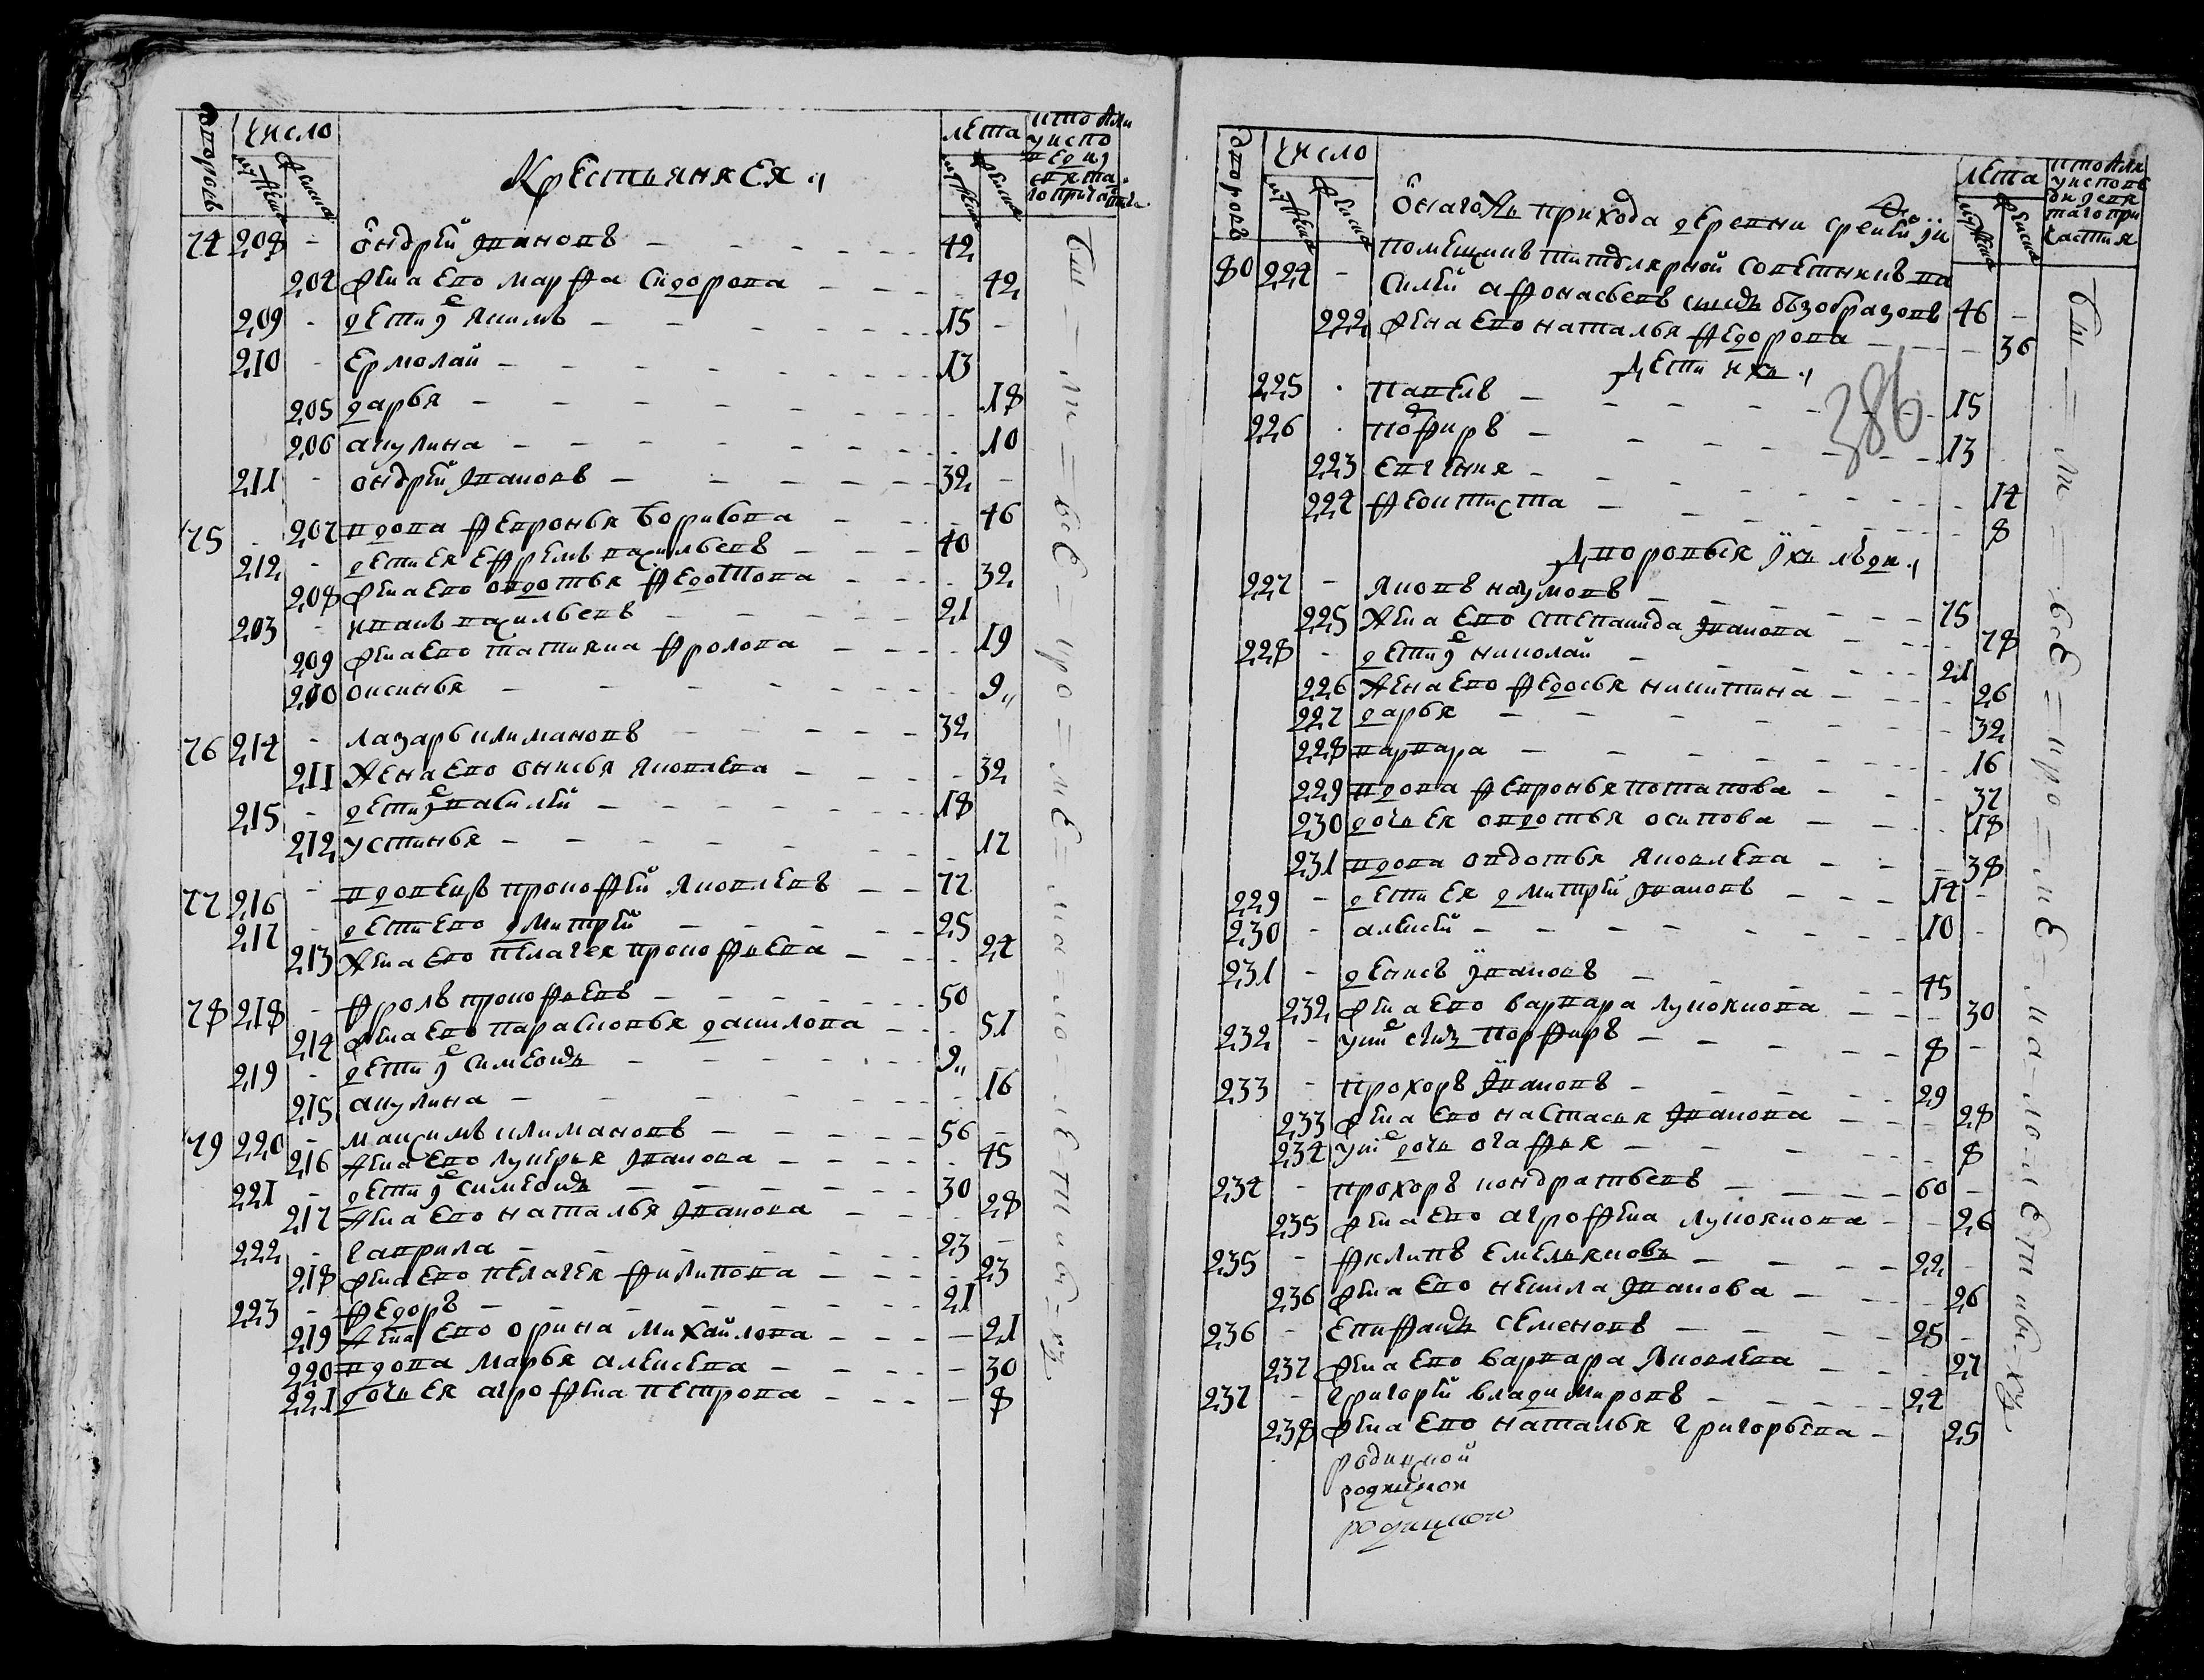 Число лета
Крестьяня Ея
74 208 - Ондрей Иванов - 42
204 жена Ево Марфа Сидорова - 42
209 - дети их Яким - 15 -
210 - Ермолай - 13
205 дарья - 18
206 акулина - 10
211 - ондрей Иванов - 32 -
75 - 207 вдова Февронья Борисова - 46
212 - дети Ея Ефрем васильев - 40
208 жена Ево овдотья Федотова - 32
203 - иван васильев - 21
209 жена Ево татияна Фролова - 19
210 оксинья - 9
76 214 - лазарь климанов - 32
211 жена Ево онисья Яковлева - 32
215 - дети их василей - 18
212 устинья - 17
77 216 - вдовец прокофей Яковлев - 77
217 - дети Ево дмитрей - 25
213 жена Ево пелагея прокофьева - 24
78 218 - Фрол прокофьев - 50
214 жена Ево парасковья данилова - 51
219 - дети их Симеон - 9
215 акулина - 16
79 220 - максим климанов - 56 -
216 жена Ево лукерья Иванова - 45
221 - дети их симеон - 30
217 жена Ево наталья Иванова - 28
222 - гаврила - 23 -
218 жена Ево пелагея филипова - 23
223 - Федор - 21
219 жена Ево орина Михайлова - 21
220 вдова Марья алексева - 30
221 дочь Ея агрофена петрова - 8
Число лета
Онагож прихода деревни
80 224 - помещик титулярной советник ва
силей афонасьев сын безобразов 46 -
222 жена Ево наталья Федорова - 36
Дети их
386
225 - павел - 15
226 - порфир - 13
223 евгения - 14
224 Феоктиста - 8
Дворовыя их люди
227 - Яков наумов - 75
225 жена Ево степанида Иванова - 78
228 - дети их николай - 21
226 жена Ево Федосья никитина - 26
227 дарья - 32
228 варвара - 16
229 вдова Февронья потапова - 37
230 дочь Ея овдотья осипова - 18
231 вдова овдотья Яковлева - 38
229 - дети Ея дмитрей Иванов - 14 -
230 - алексей - 10 -
231 - денис Иванов - 45
232 жена Ево варвара лукоянова - 30
232 - у них сын порфир - 8 -
233 - прохор Иванов - 29
233 жена Ево настасья Иванова - 28
234 у них дочь огафья - 8
234 - прохор кондратьев - 60 -
235 жена Ево агрофена лукоянова - 26
235 - филип Емельянов - 22 -
236 жена Ево ненила Иванова - 26
236 - Епифан семенов - 25 -
237 жена Ево варвара Яковлева - 27
237 - григорей владимиров - 24
238 жена Ево наталья григорьева - 25